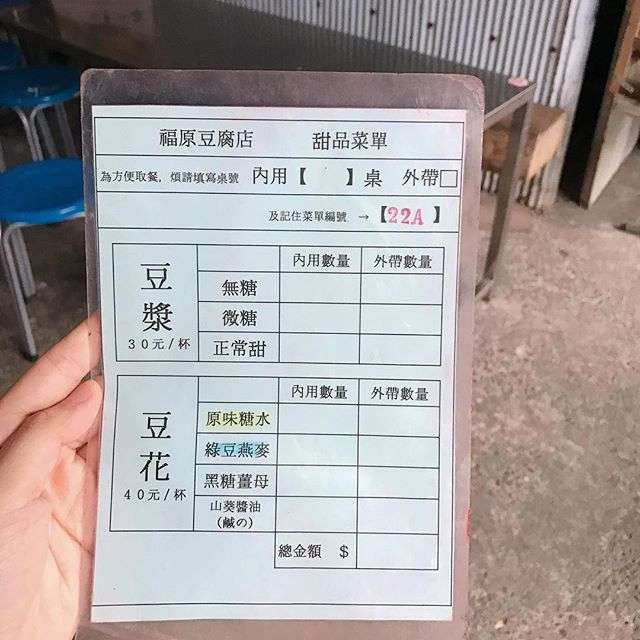 福原豆腐店 甜品菜單
為方便取餐，煩請填寫桌號 內用【 】桌 外帶□
及記住菜單編號 →【22A】
豆漿
30元/杯
內用數量 外帶數量
無糖
微糖
正常甜
豆花
40元/杯
內用數量 外帶數量
原味糖水
綠豆燕麥
黑糖薑母
山葵醬油
(鹹の)
總金額 $